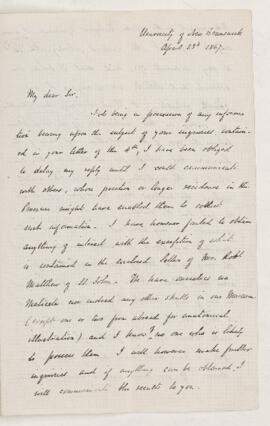 University of New Brunswick
April 23d 1867.
My dear Sir.
Not being in possession of any informa
tion bearing upon the subject of your inquiries contain
ed in your letter of the 4th, I have been obliged
to delay my reply until I could communicate
with others, whose position or longer residence in the
Province, might have enabled them to collect
such information. I have however failed to obtain
anything of interest with the exception of what
is contained in the enclosed letter of Mr.
Matthew of St John. We have ourselves no
nor indeed any other skulls in our Museum
(except one or two from abroad for anatomical
illustration) and I know of no one who is likely
to possess them. I will however make further
inquiries and if anything can be obtained, I
will communicate the results to you.